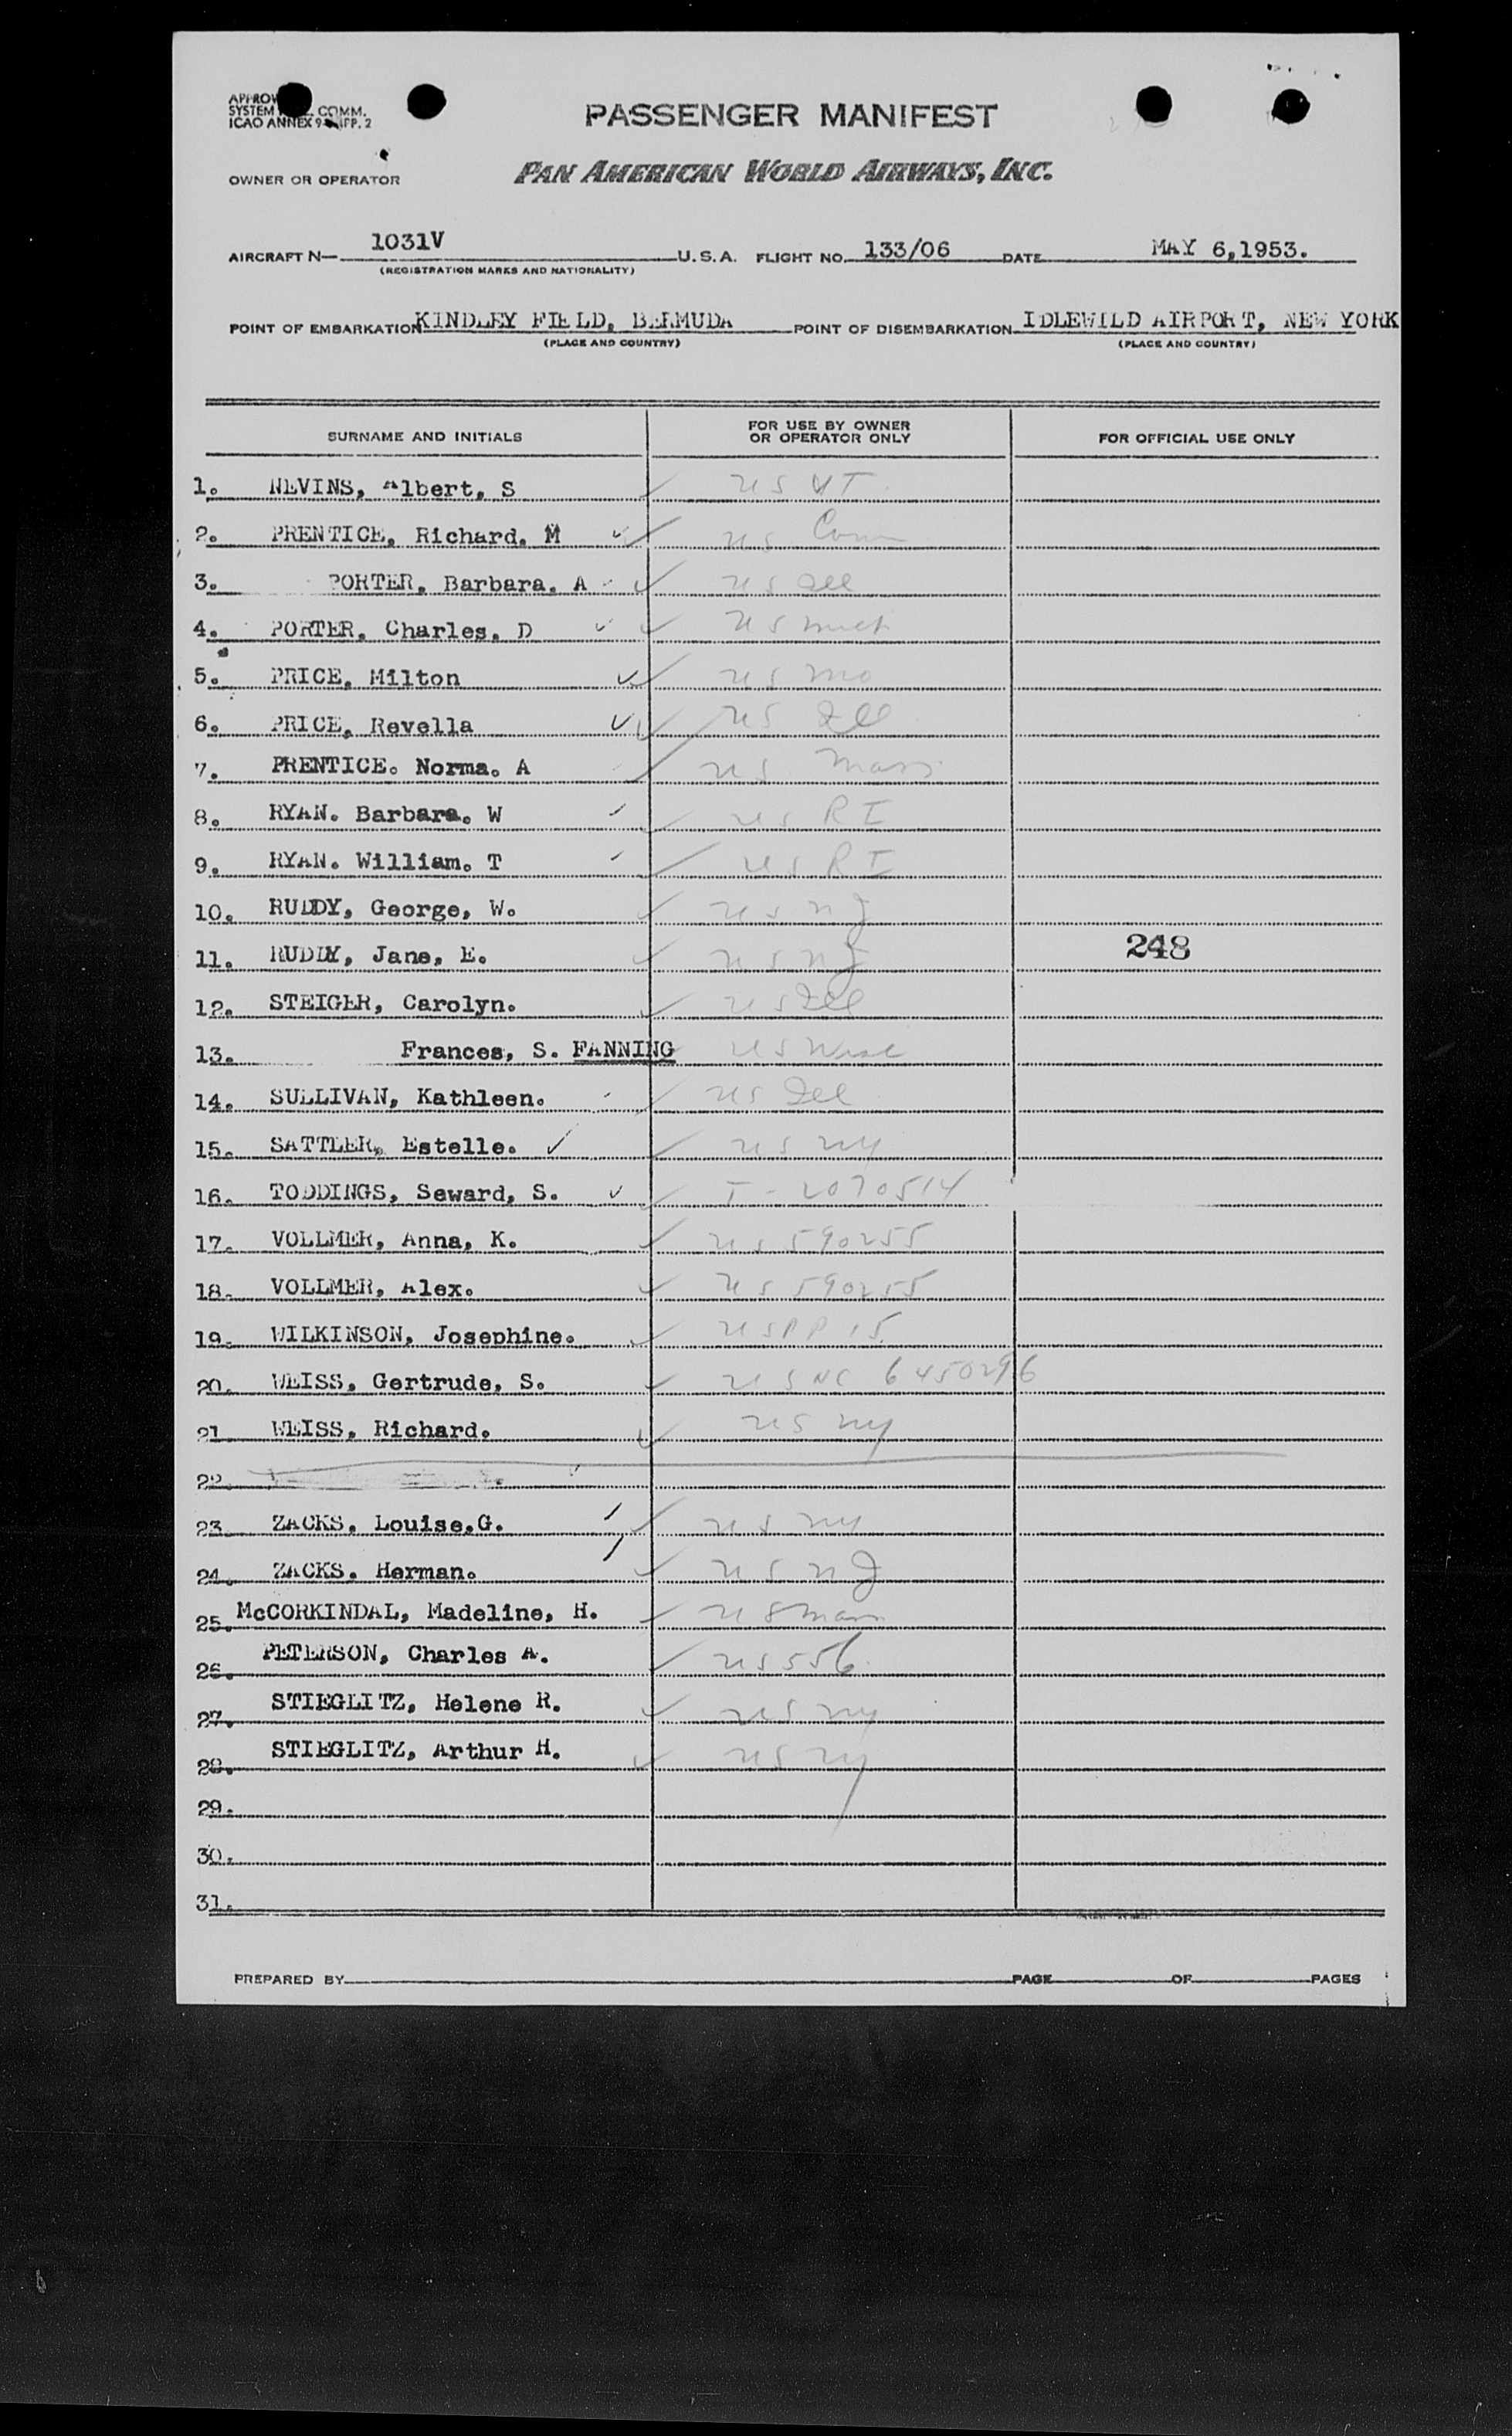 PASSENGER MANIFEST
OWNER OR OPERATOR PAN AMERICAN WORLD AIRWAYS, INC.
AIRCRAFT N— 1031V U.S.A. FLIGHT NO. 133/06 DATE MAY 6,1953.
(REGISTRATION MARKS AND NATIONALITY)
POINT OF EMBARKATION KINDLEY FIELD, BERMUDA POINT OF DISEMBARKATION IDLEWILD AIRPORT, NEW YORK
(PLACE AND COUNTRY) (PLACE AND COUNTRY)
SURNAME AND INITIALS FOR USE BY OWNER OR OPERATOR ONLY FOR OFFICIAL USE ONLY
1. NEVINS, Albert, S US VT
2. PRENTICE, Richard, M US Conn
3. PORTER, Barbara, A US Ill
4. PORTER, Charles, D US Mich
5. PRICE, Milton US Mo
6. PRICE, Revella US Ill
7. PRENTICE. Norma. A US Mass
8. RYAN. Barbara. W US RI
9. RYAN. William. T US RI
10. RUDDY, George, W. US NJ
11. RUDDY, Jane, E. US NJ 248
12. STEIGER, Carolyn. US Ill
13. Frances, S. FANNING US Wisc
14. SULLIVAN, Kathleen. US Ill
15. SATTLER, Estelle. US NY
16. TODDINGS, Seward, S. I-2070514
17. VOLLMER, Anna, K. US 590255
18. VOLLMER, Alex. US 590255
19. WILKINSON, Josephine. US PP 15
20. WEISS, Gertrude, S. US NC 6450296
21 WEISS, Richard. US NY
22.
23 ZACKS. Louise.G. US NY
24. ZACKS. Herman. US NJ
25. McCORKINDAL, Madeline, H. US Mass
26. PETERSON, Charles A. US 556
27. STIEGLITZ, Helene R. US NY
28. STIEGLITZ, Arthur H. US NY
29.
30.
31.
PREPARED BY PAGE OF PAGES